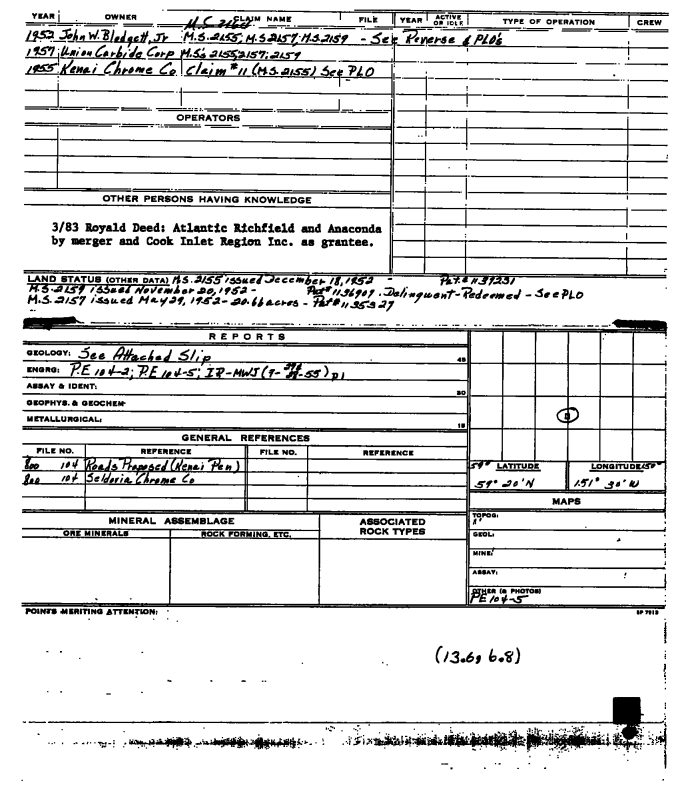 YEAR OWNER CLAIM NAME FILE YEAR ACTIVE OR IDLE TYPE OF OPERATION CREW
1952 John W. Blodgett, Jr M.S. 2155, M.S. 2157, M.S. 2159 - See Reverse & PLO's
1957 Union Carbide Corp M.S's 2155, 2157, 2159
1955 Kenai Chrome Co Claim #11 (M.S. 2155) See PLO
OPERATORS
OTHER PERSONS HAVING KNOWLEDGE
3/83 Royald Deed: Atlantic Richfield and Anaconda
by merger and Cook Inlet Region Inc. as grantee.
LAND STATUS (OTHER DATA) M.S. 2155 issued December 18, 1952 - Pat.# 1137231
M.S. 2159 issued November 20, 1952 - Pat# 1136907. Delinquent-Redeemed - See PLO
M.S. 2157 issued May 29, 1952 - 20.66 acres - Pat# 1135327
REPORTS
GEOLOGY: See Attached Slip 45
ENGRG: P.E 104-2; P.E 104-5; IR-MWJ
ASSAY & IDENT: 30
GEOPHYS. & GEOCHEM
METALLURGICAL: 15
GENERAL REFERENCES
FILE NO. REFERENCE FILE NO. REFERENCE
800 104 Roads Proposed (Kenai Pen)
800 104 Seldovia Chrome Co
59° LATITUDE LONGITUDE 150°
59° 20' N 151° 30' W
MAPS
MINERAL ASSEMBLAGE ASSOCIATED ROCK TYPES
ORE MINERALS ROCK FORMING, ETC.
TOPOG:
GEOL:
MINE:
ASSAY:
OTHER (& PHOTOS)
PE 104-5
POINTS MERITING ATTENTION: SP 7913
(13.6, 6.8)